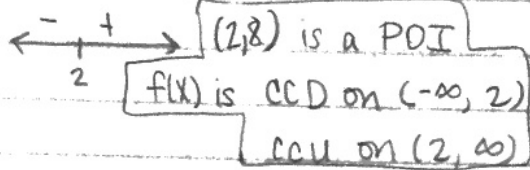 - +
2
(2,8) is a POI
f(x) is CCD on (-∞, 2)
CCU on (2, ∞)